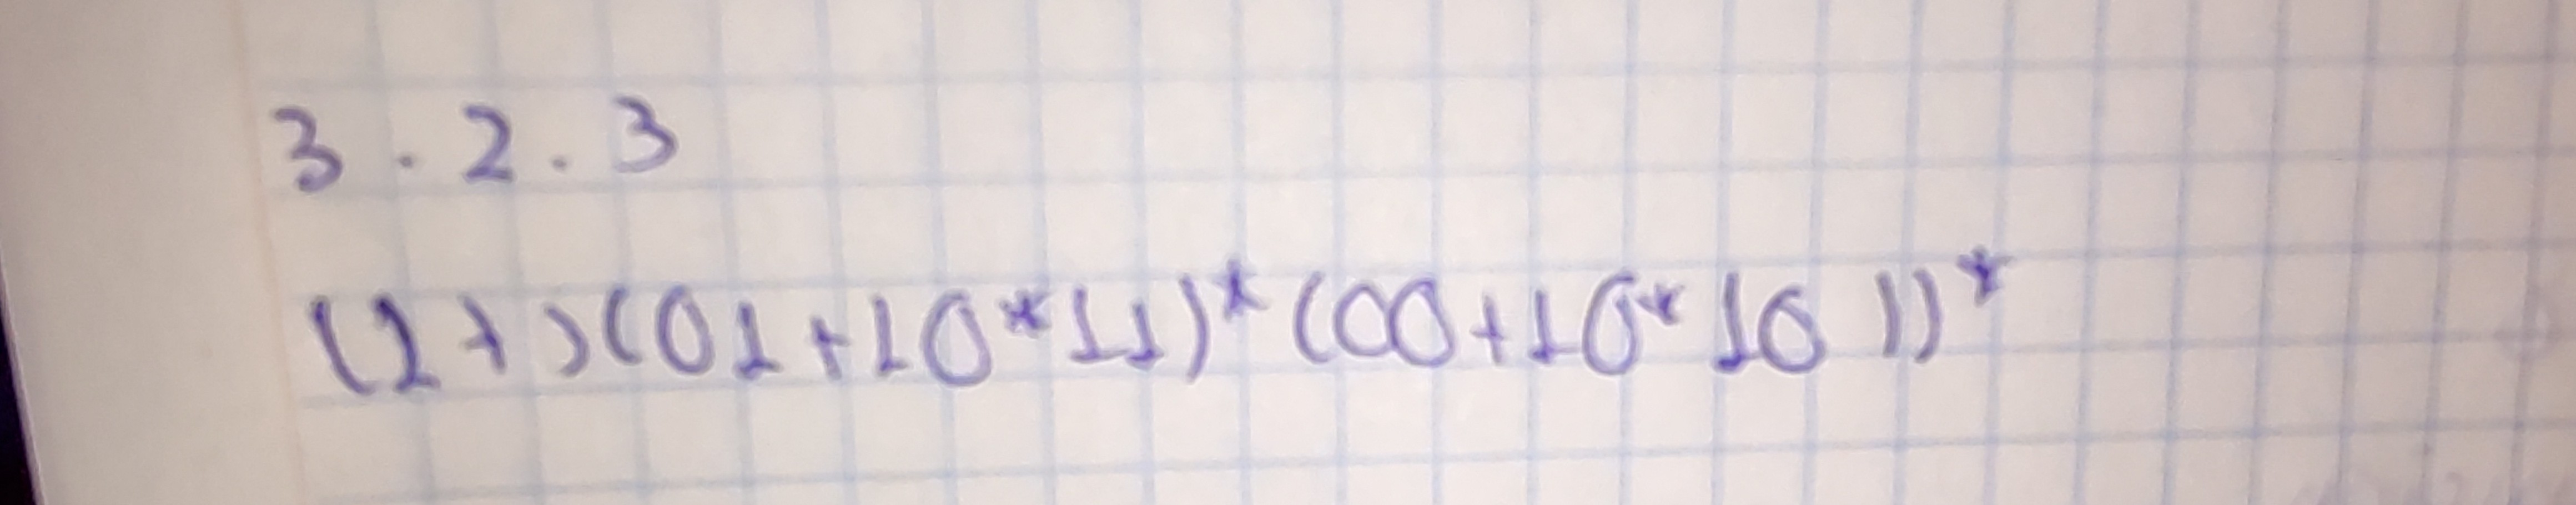 3.2.3
(1+)(01+10*11)*(00+10*101))*